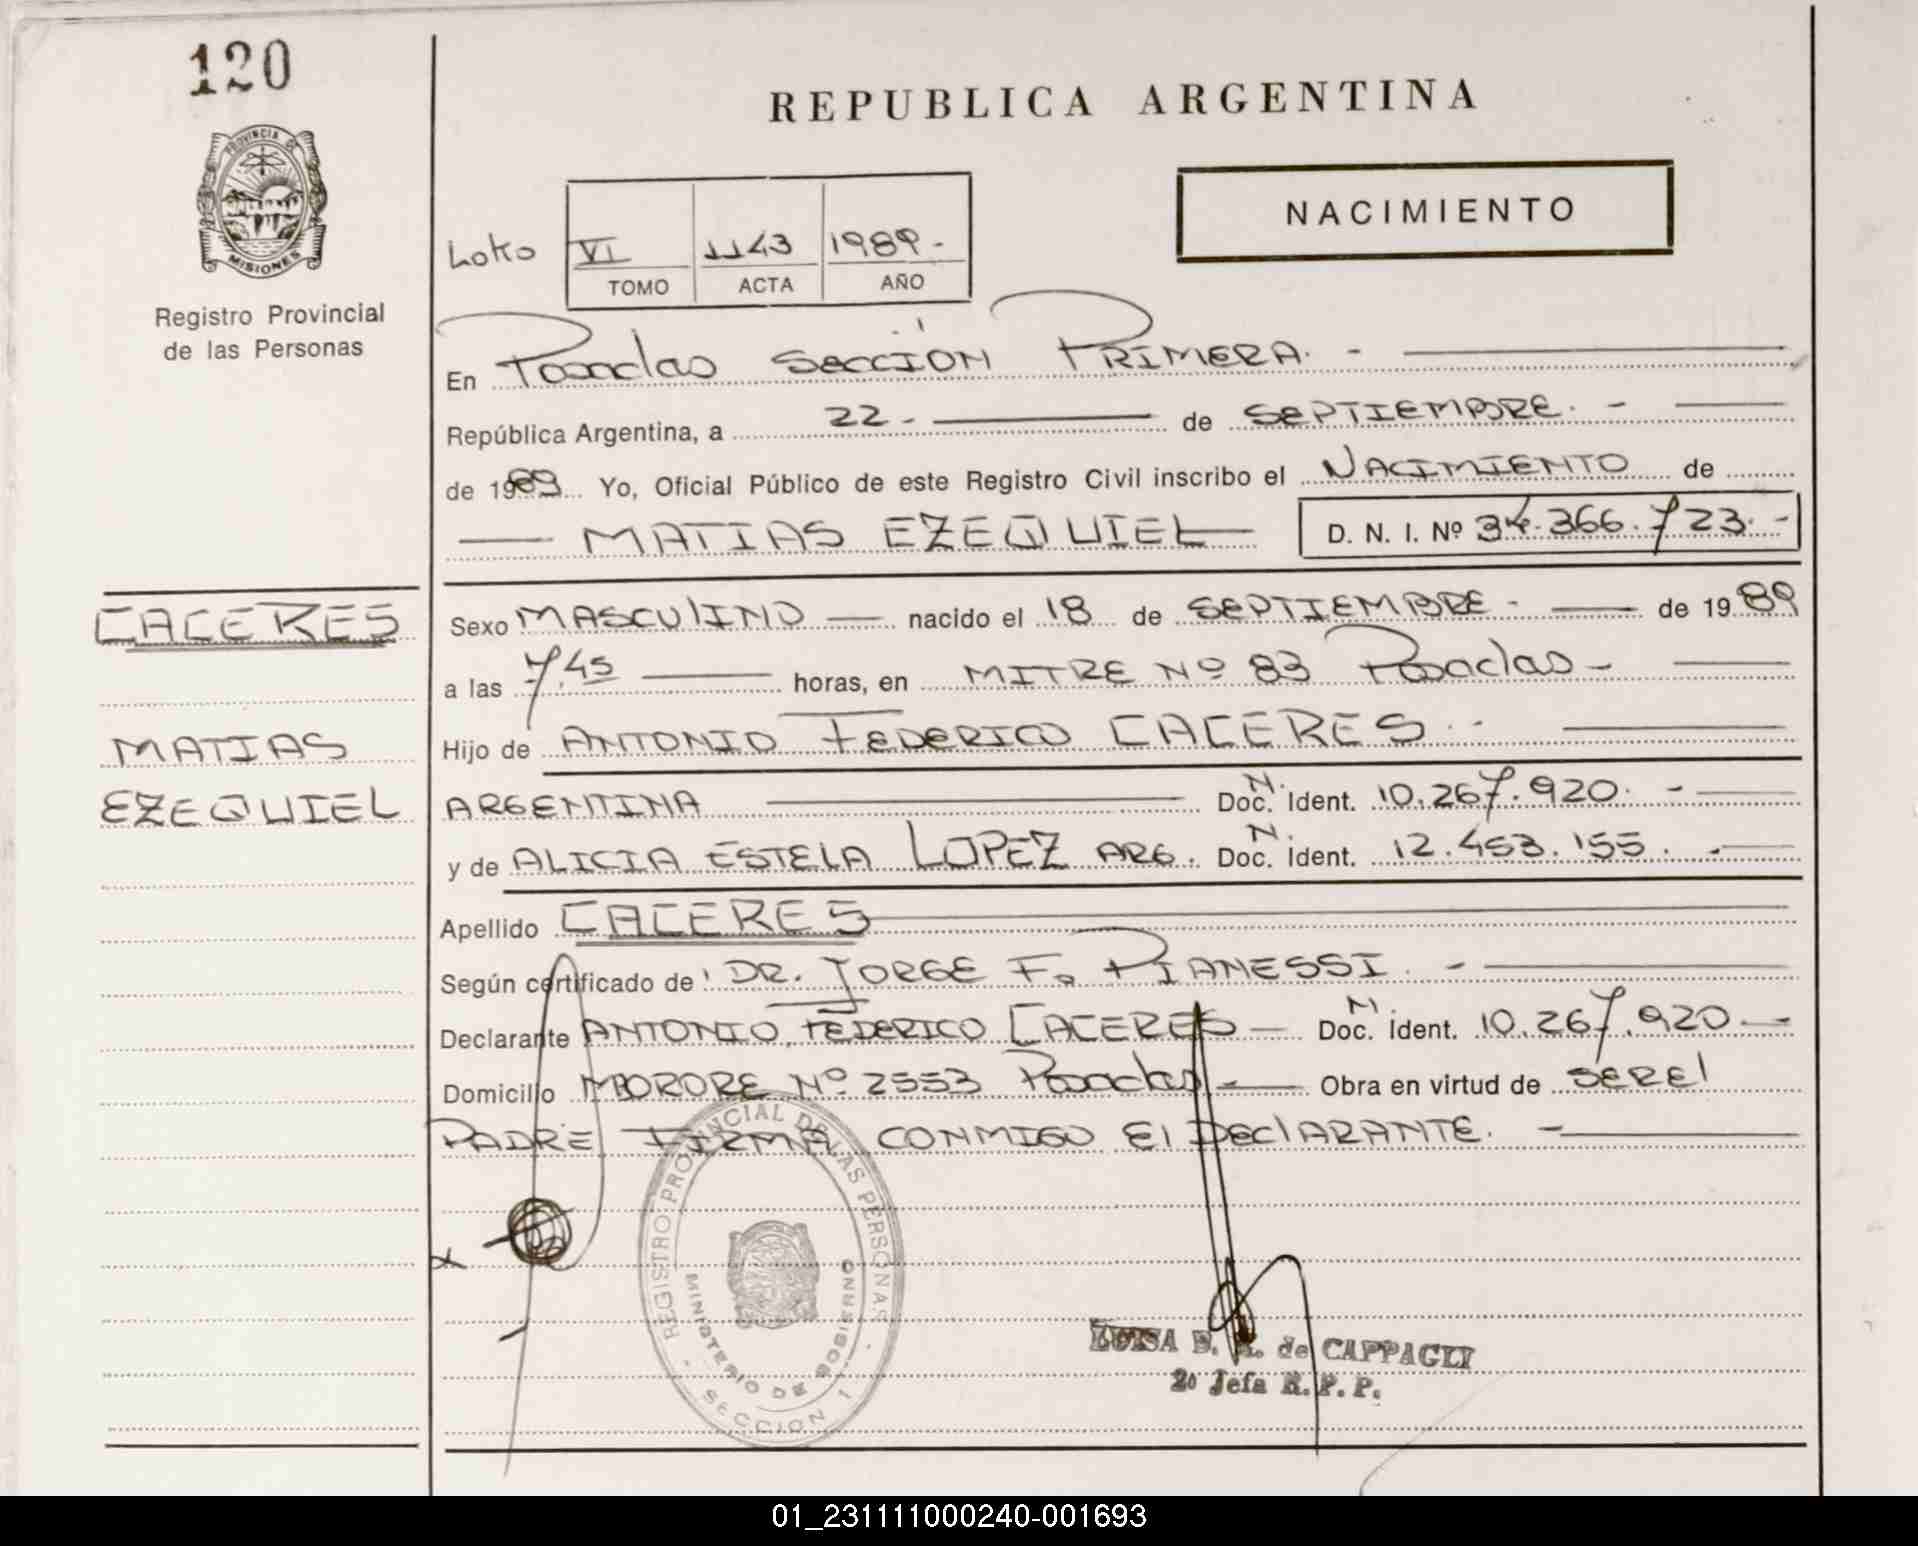 120
REPUBLICA ARGENTINA
NACIMIENTO
PROVINCIA DE
MISIONES
Registro Provincial
de las Personas
VI 1143 1989.-
TOMO ACTA AÑO
En Posadas Sección PRIMERA.-
República Argentina, a 22.- de SEPTIEMBRE.-
de 1989 Yo, Oficial Público de este Registro Civil inscribo el NACIMIENTO de
MATIAS EZEQUIEL D. N. I. Nº 34.366.723.-
CACERES
MATIAS
EZEQUIEL
Sexo MASCULINO nacido el 18 de SEPTIEMBRE- de 1989
a las 7,45 horas, en MITRE Nº 83 Posadas-
Hijo de ANTONIO FEDERICO CACERES.-
ARGENTINA Doc. N. Ident. 10.267.920.-
y de ALICIA ESTELA LOPEZ ARG. Doc. N. Ident. 12.453.155.-
Apellido CACERES
Según certificado de DR. JORGE F. PIANESSI.-
Declarante ANTONIO FEDERICO CACERES- Doc. N. Ident. 10.267.920-
Domicilio Nº 2553 Posadas- Obra en virtud de SER El
PADRE FIRMA CONMIGO El DEClARANTE.-
REGISTRO PROVINCIAL DE LAS PERSONAS
MINISTERIO DE GOBIERNO
- SECCION 1 -
LUISA B. de CAPPAGLI
2º Jefa R. P. P.
01_231111000240-001693